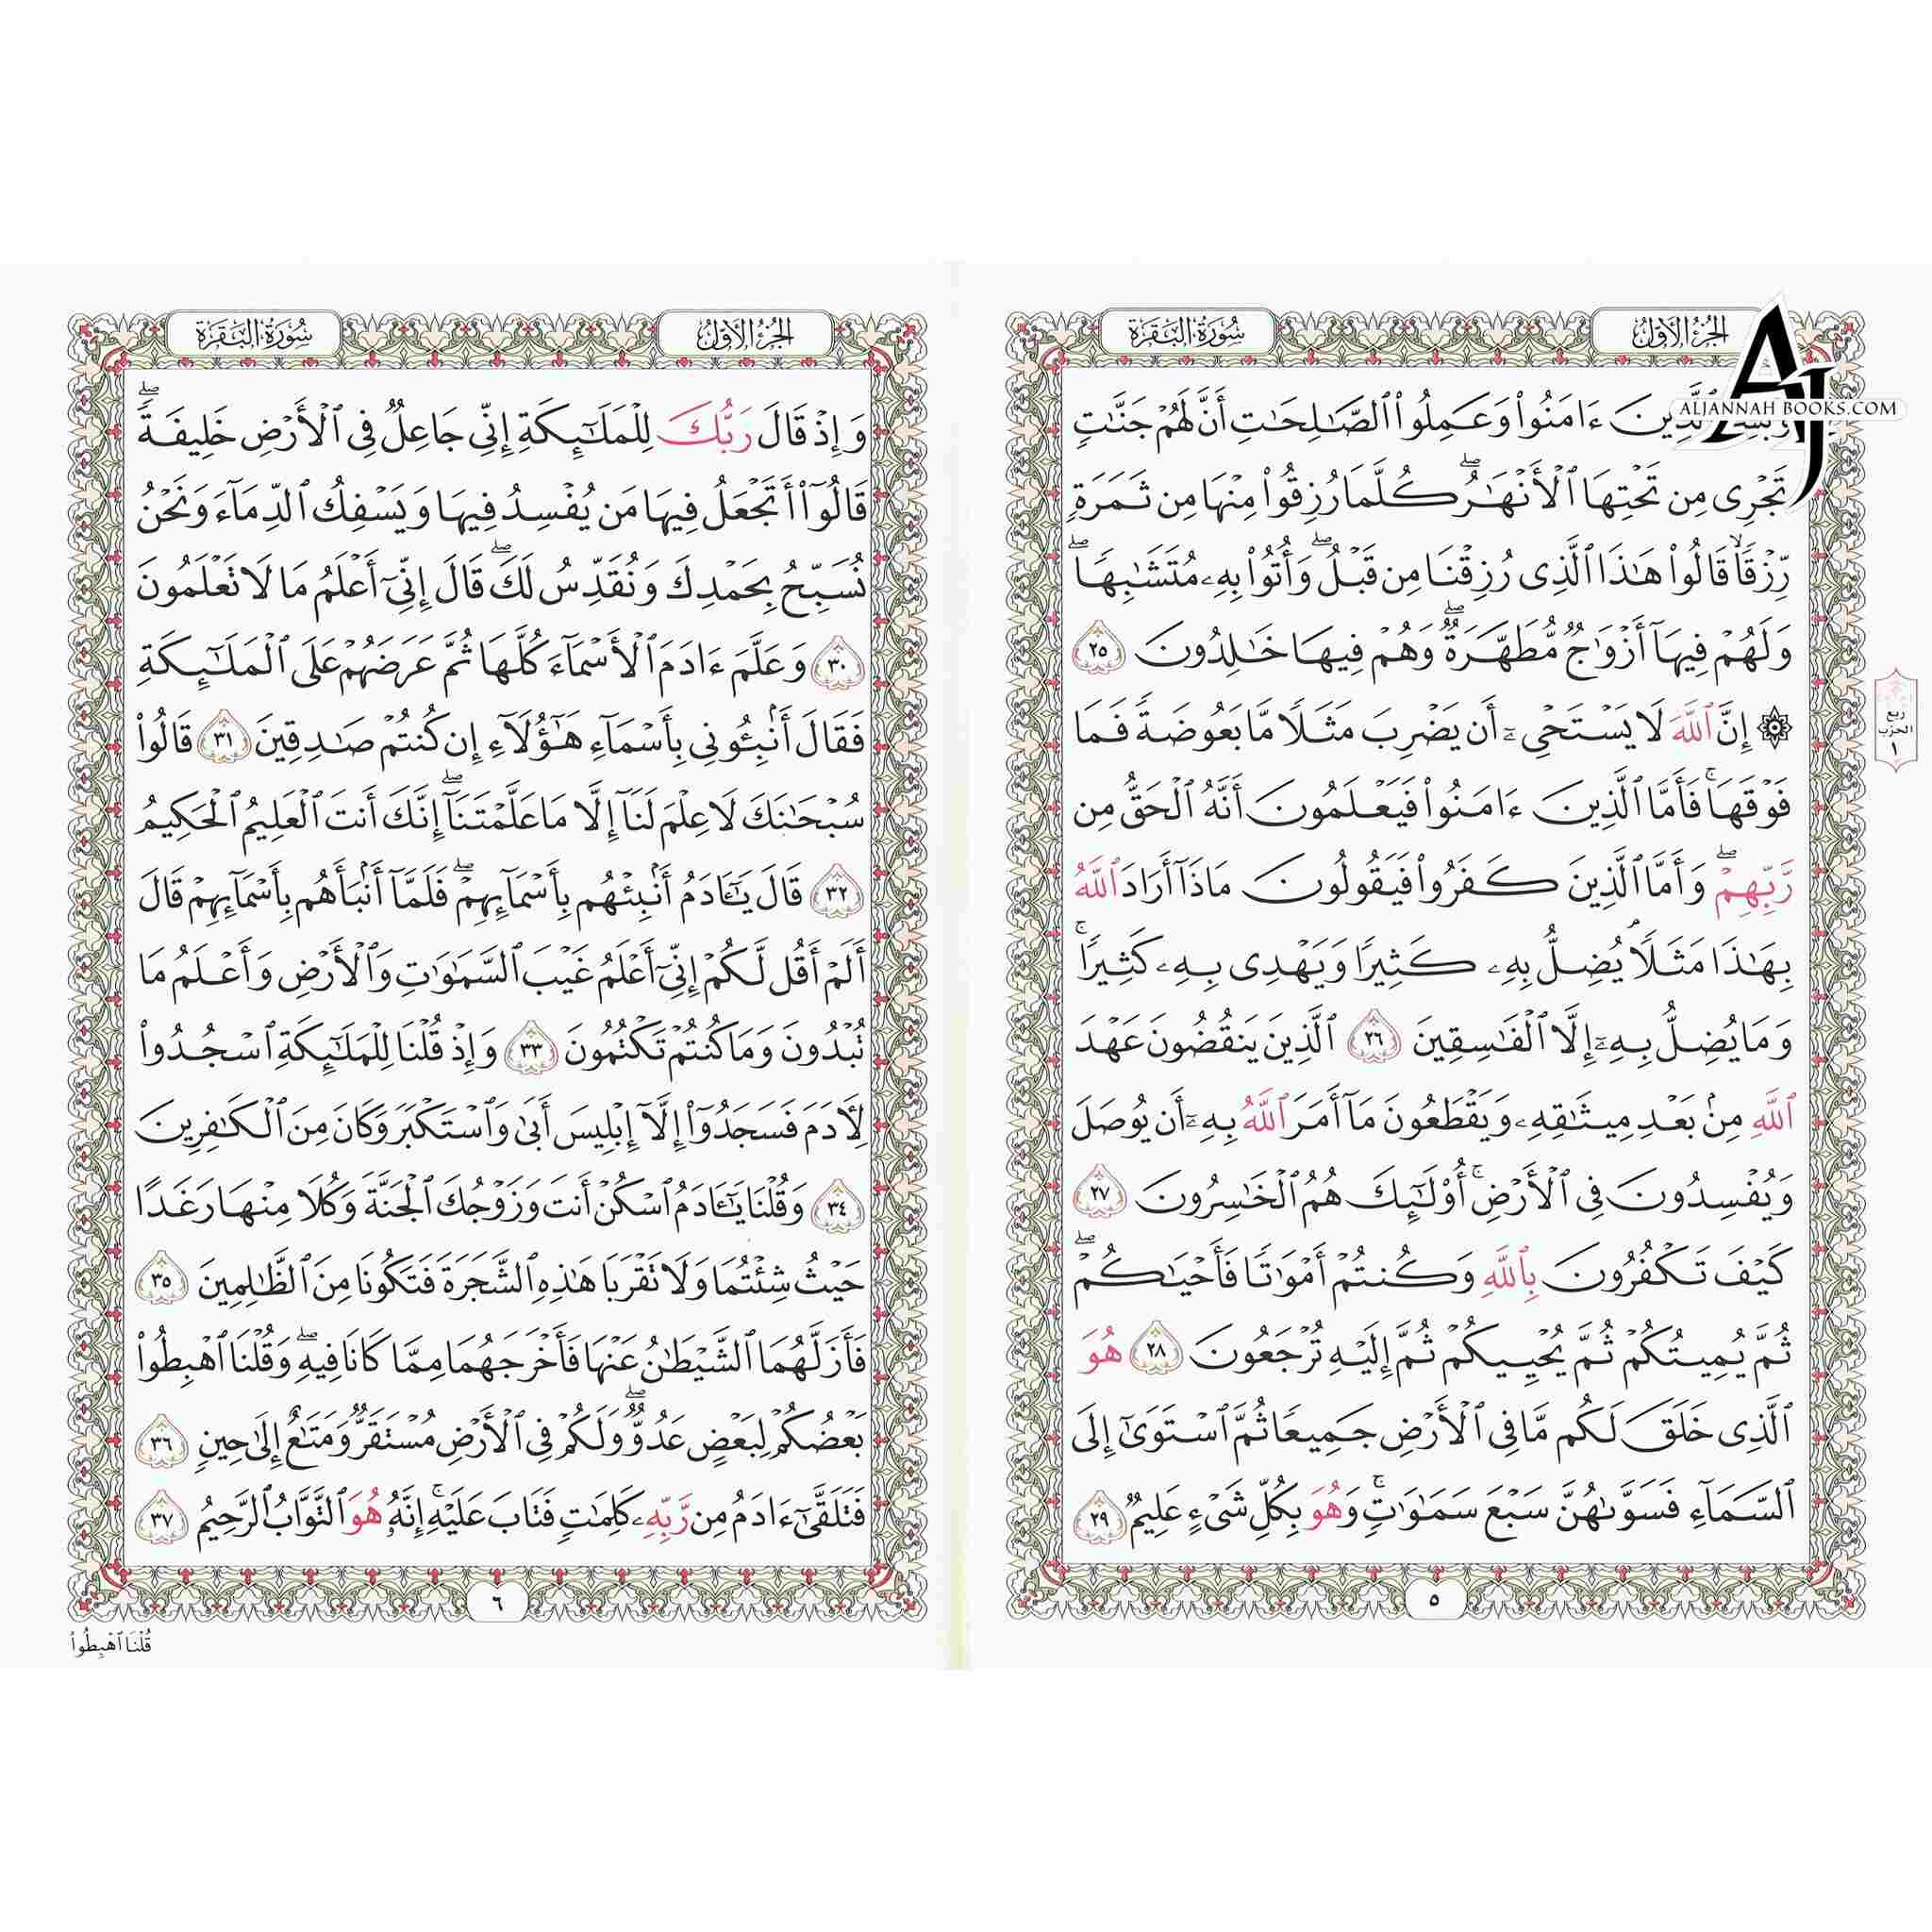 الجزء الأول
سورة البقرة
ALJANNAH BOOKS.COM
وَبَشِّرِ ٱلَّذِينَ ءَامَنُوا۟ وَعَمِلُوا۟ ٱلصَّـٰلِحَـٰتِ أَنَّ لَهُمْ جَنَّـٰتٍ
تَجْرِى مِن تَحْتِهَا ٱلْأَنْهَـٰرُ ۖ كُلَّمَا رُزِقُوا۟ مِنْهَا مِن ثَمَرَةٍ
رِّزْقًا ۙ قَالُوا۟ هَـٰذَا ٱلَّذِى رُزِقْنَا مِن قَبْلُ ۖ وَأُتُوا۟ بِهِۦ مُتَشَـٰبِهًا ۖ
وَلَهُمْ فِيهَآ أَزْوَٰجٌ مُّطَهَّرَةٌ ۖ وَهُمْ فِيهَا خَـٰلِدُونَ ٢٥
۞ إِنَّ ٱللَّهَ لَا يَسْتَحْىِۦٓ أَن يَضْرِبَ مَثَلًا مَّا بَعُوضَةً فَمَا
ربع
الحزب
١
فَوْقَهَا ۚ فَأَمَّا ٱلَّذِينَ ءَامَنُوا۟ فَيَعْلَمُونَ أَنَّهُ ٱلْحَقُّ مِن
رَّبِّهِمْ ۖ وَأَمَّا ٱلَّذِينَ كَفَرُوا۟ فَيَقُولُونَ مَاذَآ أَرَادَ ٱللَّهُ
بِهَـٰذَا مَثَلًا ۘ يُضِلُّ بِهِۦ كَثِيرًا وَيَهْدِى بِهِۦ كَثِيرًا ۚ
وَمَا يُضِلُّ بِهِۦٓ إِلَّا ٱلْفَـٰسِقِينَ ٢٦ ٱلَّذِينَ يَنقُضُونَ عَهْدَ
ٱللَّهِ مِنۢ بَعْدِ مِيثَـٰقِهِۦ وَيَقْطَعُونَ مَآ أَمَرَ ٱللَّهُ بِهِۦٓ أَن يُوصَلَ
وَيُفْسِدُونَ فِى ٱلْأَرْضِ ۚ أُو۟لَـٰٓئِكَ هُمُ ٱلْخَـٰسِرُونَ ٢٧
كَيْفَ تَكْفُرُونَ بِٱللَّهِ وَكُنتُمْ أَمْوَٰتًا فَأَحْيَـٰكُمْ ۖ
ثُمَّ يُمِيتُكُمْ ثُمَّ يُحْيِيكُمْ ثُمَّ إِلَيْهِ تُرْجَعُونَ ٢٨ هُوَ
ٱلَّذِى خَلَقَ لَكُم مَّا فِى ٱلْأَرْضِ جَمِيعًا ثُمَّ ٱسْتَوَىٰٓ إِلَى
ٱلسَّمَآءِ فَسَوَّىٰهُنَّ سَبْعَ سَمَـٰوَٰتٍ ۚ وَهُوَ بِكُلِّ شَىْءٍ عَلِيمٌ ٢٩
٥
الجزء الأول
سورة البقرة
وَإِذْ قَالَ رَبُّكَ لِلْمَلَـٰٓئِكَةِ إِنِّى جَاعِلٌ فِى ٱلْأَرْضِ خَلِيفَةً ۖ
قَالُوٓا۟ أَتَجْعَلُ فِيهَا مَن يُفْسِدُ فِيهَا وَيَسْفِكُ ٱلدِّمَآءَ وَنَحْنُ
نُسَبِّحُ بِحَمْدِكَ وَنُقَدِّسُ لَكَ ۖ قَالَ إِنِّىٓ أَعْلَمُ مَا لَا تَعْلَمُونَ
٣٠ وَعَلَّمَ ءَادَمَ ٱلْأَسْمَآءَ كُلَّهَا ثُمَّ عَرَضَهُمْ عَلَى ٱلْمَلَـٰٓئِكَةِ
فَقَالَ أَنۢبِـُٔونِى بِأَسْمَآءِ هَـٰٓؤُلَآءِ إِن كُنتُمْ صَـٰدِقِينَ ٣١ قَالُوا۟
سُبْحَـٰنَكَ لَا عِلْمَ لَنَآ إِلَّا مَا عَلَّمْتَنَآ ۖ إِنَّكَ أَنتَ ٱلْعَلِيمُ ٱلْحَكِيمُ
٣٢ قَالَ يَـٰٓـَٔادَمُ أَنۢبِئْهُم بِأَسْمَآئِهِمْ ۖ فَلَمَّآ أَنۢبَأَهُم بِأَسْمَآئِهِمْ قَالَ
أَلَمْ أَقُل لَّكُمْ إِنِّىٓ أَعْلَمُ غَيْبَ ٱلسَّمَـٰوَٰتِ وَٱلْأَرْضِ وَأَعْلَمُ مَا
تُبْدُونَ وَمَا كُنتُمْ تَكْتُمُونَ ٣٣ وَإِذْ قُلْنَا لِلْمَلَـٰٓئِكَةِ ٱسْجُدُوا۟
لِـَٔادَمَ فَسَجَدُوٓا۟ إِلَّآ إِبْلِيسَ أَبَىٰ وَٱسْتَكْبَرَ وَكَانَ مِنَ ٱلْكَـٰفِرِينَ
٣٤ وَقُلْنَا يَـٰٓـَٔادَمُ ٱسْكُنْ أَنتَ وَزَوْجُكَ ٱلْجَنَّةَ وَكُلَا مِنْهَا رَغَدًا
حَيْثُ شِئْتُمَا وَلَا تَقْرَبَا هَـٰذِهِ ٱلشَّجَرَةَ فَتَكُونَا مِنَ ٱلظَّـٰلِمِينَ ٣٥
فَأَزَلَّهُمَا ٱلشَّيْطَـٰنُ عَنْهَا فَأَخْرَجَهُمَا مِمَّا كَانَا فِيهِ ۖ وَقُلْنَا ٱهْبِطُوا۟
بَعْضُكُمْ لِبَعْضٍ عَدُوٌّ ۖ وَلَكُمْ فِى ٱلْأَرْضِ مُسْتَقَرٌّ وَمَتَـٰعٌ إِلَىٰ حِينٍ ٣٦
فَتَلَقَّىٰٓ ءَادَمُ مِن رَّبِّهِۦ كَلِمَـٰتٍ فَتَابَ عَلَيْهِ ۚ إِنَّهُۥ هُوَ ٱلتَّوَّابُ ٱلرَّحِيمُ ٣٧
٦
قُلْنَا ٱهْبِطُوا۟